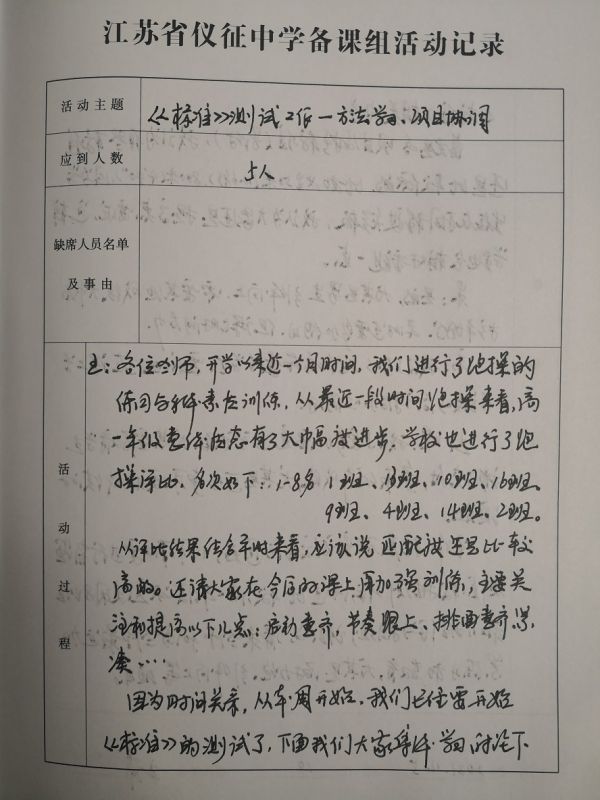 江苏省仪征中学备课组活动记录
活动主题
《标准》测试工作一方法学习、项目协调
应到人数
5人
缺席人员名单
及事由
活动过程
王:各位老师,开学以来近一个月时间,我们进行了跑操的
练习与身体素质训练,从最近一段时间跑操来看,高
一年级整体状态有了大幅度进步,学校也进行了跑
操评比,名次如下:1-8名 1班、13班、10班、16班、
9班、4班、14班、2班。
从评比结果结合平时来看,应该说匹配度还是比较
高的。还请大家在今后的课上再加强训练,主要关
注和提高以下几点:启动整齐,节奏跟上、排面整齐紧
凑……
因为时间关系,从本周开始,我们也任要开始
《标准》的测试了,下面我们大家集体学习讨论下